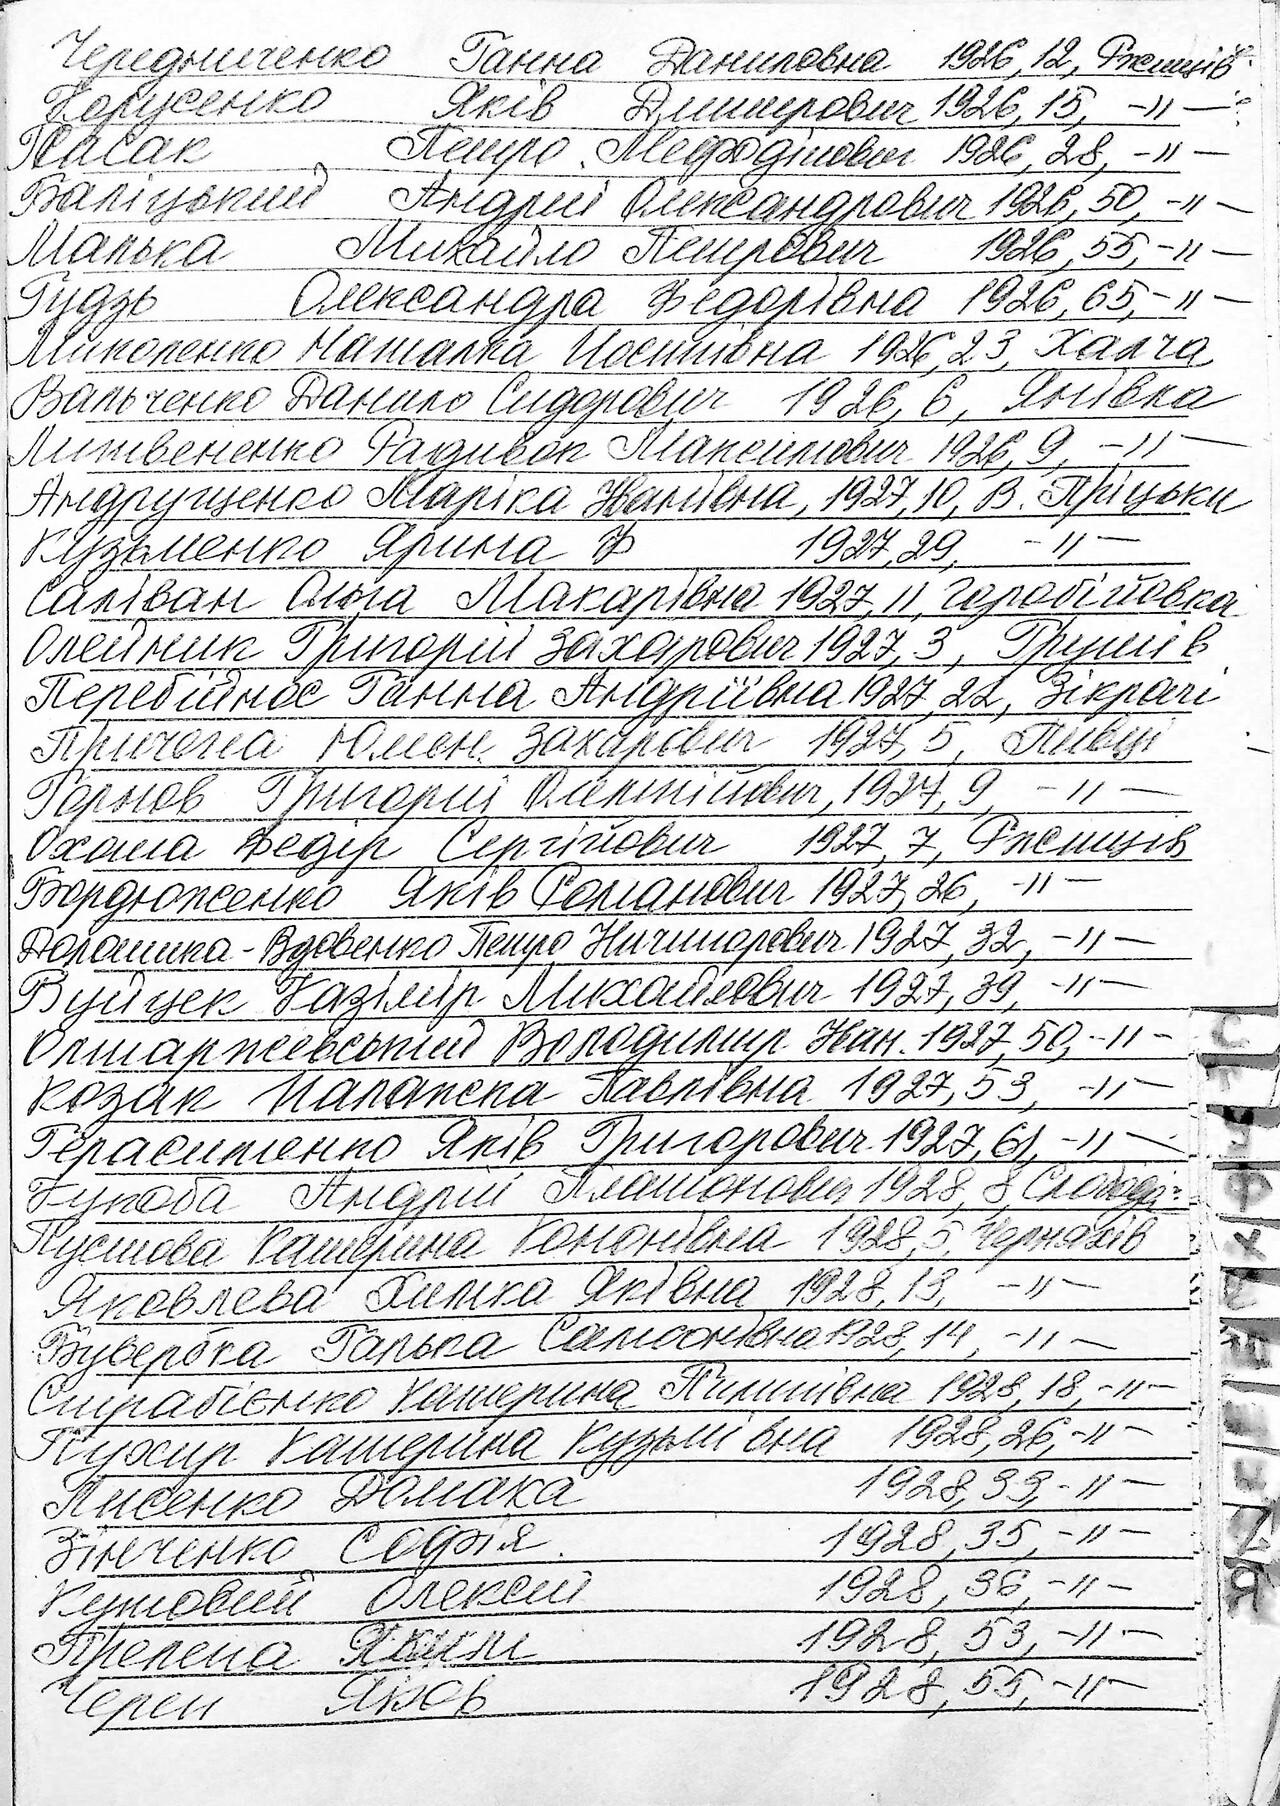 Чередниченко Ганна Даниловна 1926, 12, Ржищів
Борусенко Яків Дмитрович 1926, 15, -"-
Писак Петро Мефодійович 1926, 28, -"-
Баліцький Андрій Олександрович 1926, 50, -"-
Малька Михайло Петрович 1926, 55, -"-
Гудзь Олександра Федорівна 1926, 65, -"-
Миколенко Наталка Йосипівна 1926, 23, Халча
Вальченко Данило Сидорович 1926, 6, Янівка
Литвененко Радивок Максимович 1926, 9, -"-
Андрущенко Маріка Іванівна, 1927, 10, В. Пріцьки
Кузьменко Ярина Ф 1927, 29, -"-
Саліван Ольга Макарівна 1927, 11, Горобіївка
Олейник Григорій Захарович 1927, 3, Грушів
Перебийнос Ганна Андріївна 1927, 22, Зікрачі
Причепа Юмен. Захарович, 1927, 5, Пивці
Горнов Григорій Олексійович, 1927, 9, -"-
Охота Федір Сергійович 1927, 7, Ржищів
Бордюженко Яків Романович 1927, 26, -"-
Доломика-Вдовенко Петро Ничипорович 1927, 32, -"-
Вуйцек Казімір Михайлович 1927, 39, -"-
Олтаржевський Володимир Іван. 1927, 50, -"-
Козак Палажка Павлівна 1927, 53, -"-
Герасименко Яків Григорович 1927, 61, -"-
Кукоба Андрій Платонович 1928, 8 Слобода
Пустова Катерина Кононівна 1928, 5, Черняхів
Яковлева Химка Яківна 1928, 13, -"-
Бувербка Галька Самсонівна 1928, 14, -"-
Страбієнко Катерина Пилипівна 1928, 18, -"-
Пухир Катерина Кузьмівна 1928, 26, -"-
Лисенко Домаха 1928, 33, -"-
Зінченко Софія. 1928, 35, -"-
Кутовий Олексій 1928, 36, -"-
Препена Яким 1928, 53, -"-
Череп Яков 1928, 55, -"-